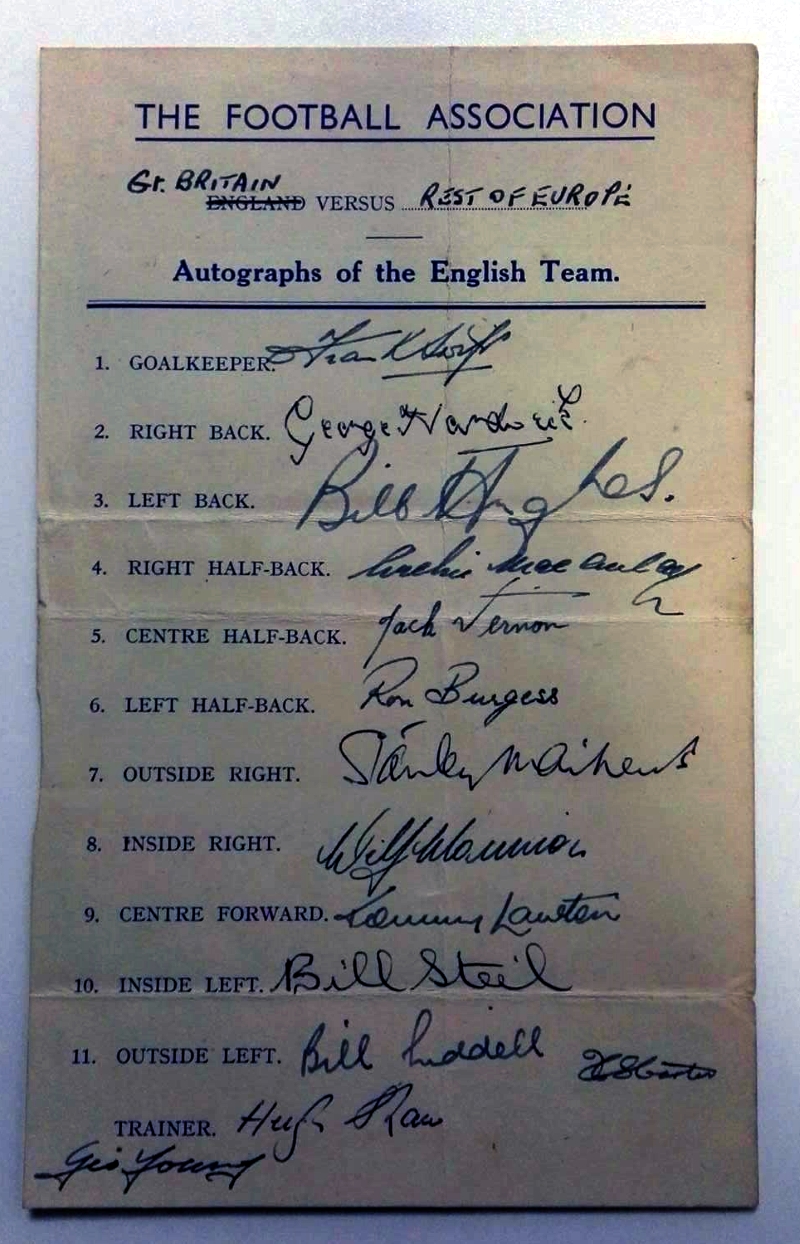 THE FOOTBALL ASSOCIATION
Gt. BRITAIN
ENGLAND VERSUS REST OF EUROPE
Autographs of the English Team.
1. GOALKEEPER. Frank Swift
2. RIGHT BACK. George Hardwick
3. LEFT BACK. Bill Hughes.
4. RIGHT HALF-BACK. Archie Macaulay
5. CENTRE HALF-BACK. Jack Vernon
6. LEFT HALF-BACK. Ron Burgess
7. OUTSIDE RIGHT. Stanley Matthews
8. INSIDE RIGHT. Wilf Mannion
9. CENTRE FORWARD. Tommy Lawton
10. INSIDE LEFT. Bill Steil
11. OUTSIDE LEFT. Bill Liddell
TRAINER. Hugh Shaw
Geo Young